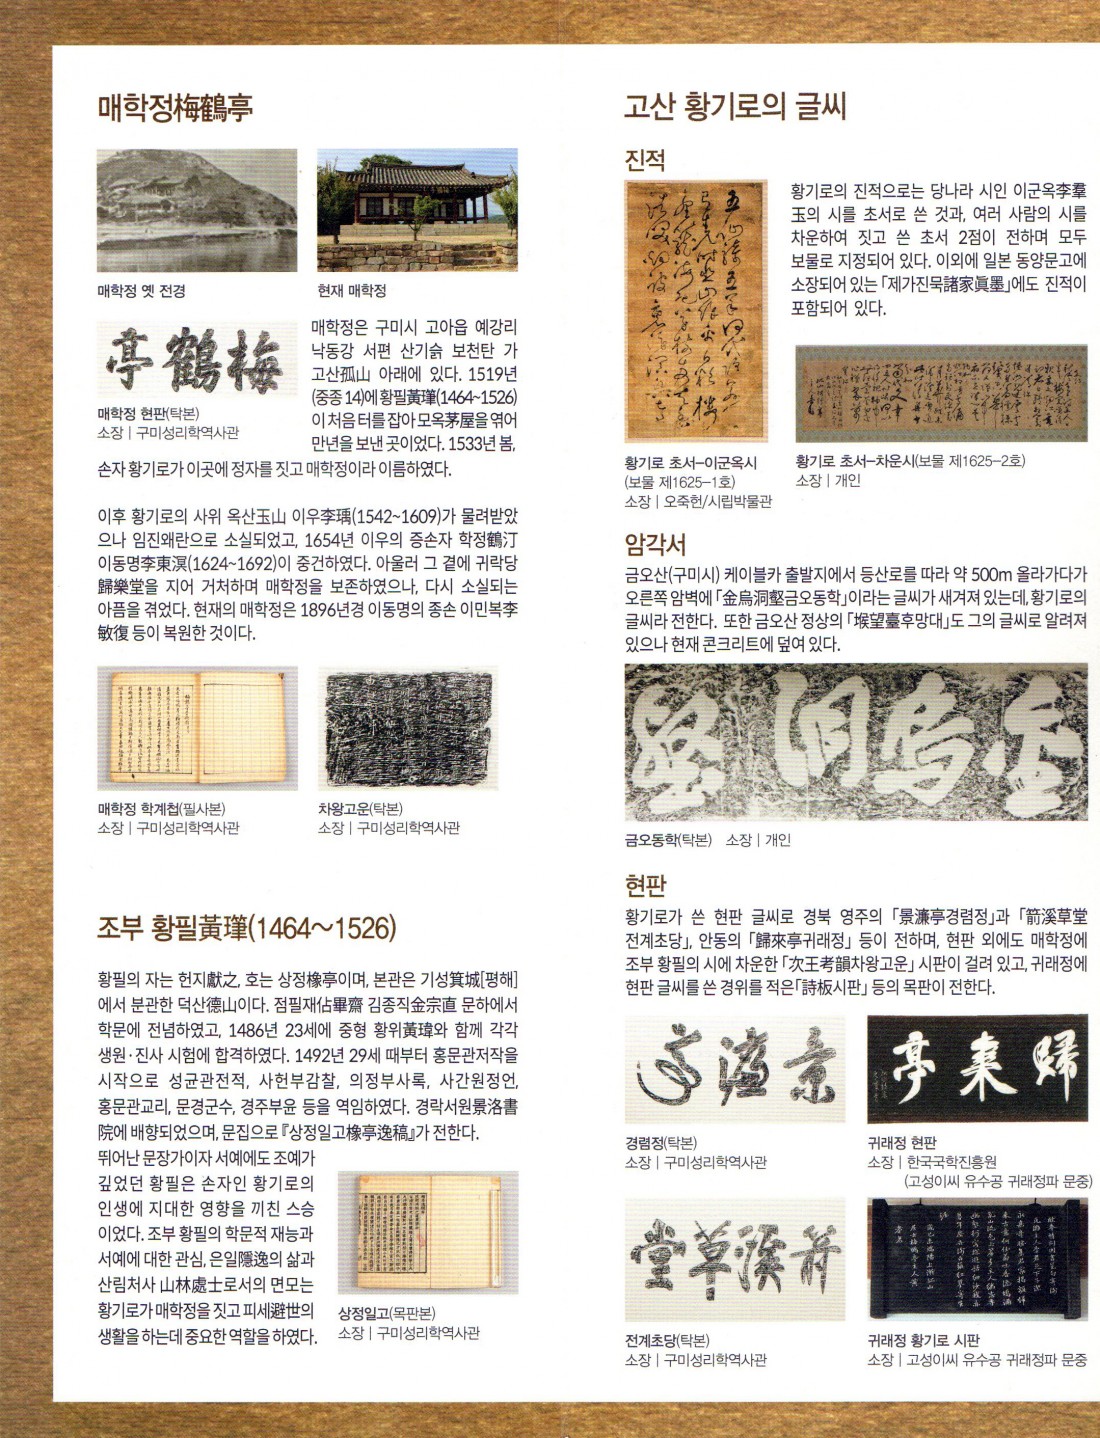 매학정梅鶴亭
매학정 옛 전경
현재 매학정
亭鶴梅
매학정 현판(탁본)
소장 | 구미성리학역사관
매학정은 구미시 고아읍 예강리
낙동강 서편 산기슭 보천탄 가
고산孤山 아래에 있다. 1519년
(중종 14)에 황필黃㻶(1464~1526)
이 처음 터를 잡아 모옥茅屋을 엮어
만년을 보낸 곳이었다. 1533년 봄,
손자 황기로가 이곳에 정자를 짓고 매학정이라 이름하였다.
이후 황기로의 사위 옥산玉山 이우李瑀(1542~1609)가 물려받았
으나 임진왜란으로 소실되었고, 1654년 이우의 증손자 학정鶴汀
이동명李東溟(1624~1692)이 중건하였다. 아울러 그 곁에 귀락당
歸樂堂을 지어 거처하며 매학정을 보존하였으나, 다시 소실되는
아픔을 겪었다. 현재의 매학정은 1896년경 이동명의 종손 이민복李
敏復 등이 복원한 것이다.
매학정 학계첩(필사본)
소장 | 구미성리학역사관
차왕고운(탁본)
소장 | 구미성리학역사관
조부 황필黃㻶(1464~1526)
황필의 자는 헌지獻之, 호는 상정橡亭이며, 본관은 기성箕城[평해]
에서 분관한 덕산德山이다. 점필재佔畢齋 김종직金宗直 문하에서
학문에 전념하였고, 1486년 23세에 중형 황위黃瑋와 함께 각각
생원·진사 시험에 합격하였다. 1492년 29세 때부터 홍문관저작을
시작으로 성균관전적, 사헌부감찰, 의정부사록, 사간원정언,
홍문관교리, 문경군수, 경주부윤 등을 역임하였다. 경락서원景洛書
院에 배향되었으며, 문집으로 『상정일고橡亭逸稿』가 전한다.
뛰어난 문장가이자 서예에도 조예가
깊었던 황필은 손자인 황기로의
인생에 지대한 영향을 끼친 스승
이었다. 조부 황필의 학문적 재능과
서예에 대한 관심, 은일隱逸의 삶과
산림처사 山林處士로서의 면모는
황기로가 매학정을 짓고 피세避世의
생활을 하는데 중요한 역할을 하였다.
상정일고(목판본)
소장 | 구미성리학역사관
고산 황기로의 글씨
진적
황기로의 진적으로는 당나라 시인 이군옥李羣
玉의 시를 초서로 쓴 것과, 여러 사람의 시를
차운하여 짓고 쓴 초서 2점이 전하며 모두
보물로 지정되어 있다. 이외에 일본 동양문고에
소장되어 있는 「제가진묵諸家眞墨」에도 진적이
포함되어 있다.
황기로 초서–이군옥시
(보물 제1625–1호)
소장 | 오죽헌/시립박물관
황기로 초서–차운시(보물 제1625–2호)
소장 | 개인
암각서
금오산(구미시) 케이블카 출발지에서 등산로를 따라 약 500m 올라가다가
오른쪽 암벽에 「金烏洞壑금오동학」이라는 글씨가 새겨져 있는데, 황기로의
글씨라 전한다. 또한 금오산 정상의 「堠望臺후망대」도 그의 글씨로 알려져
있으나 현재 콘크리트에 덮여 있다.
壑洞烏金
금오동학(탁본) 소장 | 개인
현판
황기로가 쓴 현판 글씨로 경북 영주의 「景濂亭경렴정」과 「箭溪草堂
전계초당」, 안동의 「歸來亭귀래정」 등이 전하며, 현판 외에도 매학정에
조부 황필의 시에 차운한 「次王考韻차왕고운」 시판이 걸려 있고, 귀래정에
현판 글씨를 쓴 경위를 적은 「詩板시판」 등의 목판이 전한다.
亭濂景
경렴정(탁본)
소장 | 구미성리학역사관
亭來歸
귀래정 현판
소장 | 한국국학진흥원
(고성이씨 유수공 귀래정파 문중)
堂草溪箭
전계초당(탁본)
소장 | 구미성리학역사관
귀래정 황기로 시판
소장 | 고성이씨 유수공 귀래정파 문중